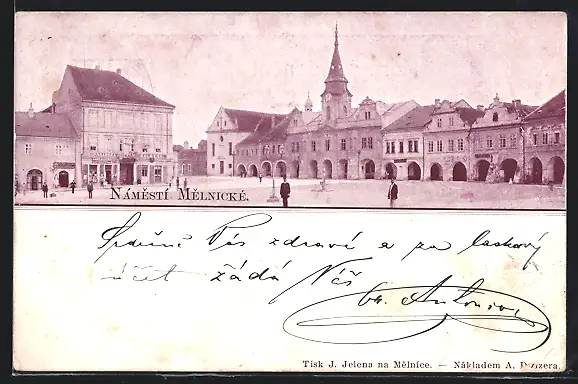 Náměstí Mělnické.
Srdečně Vás zdraví a za laskavý
účet žádá Váš
Antonín
Tisk J. Jelena na Mělníce. — Nákladem A.